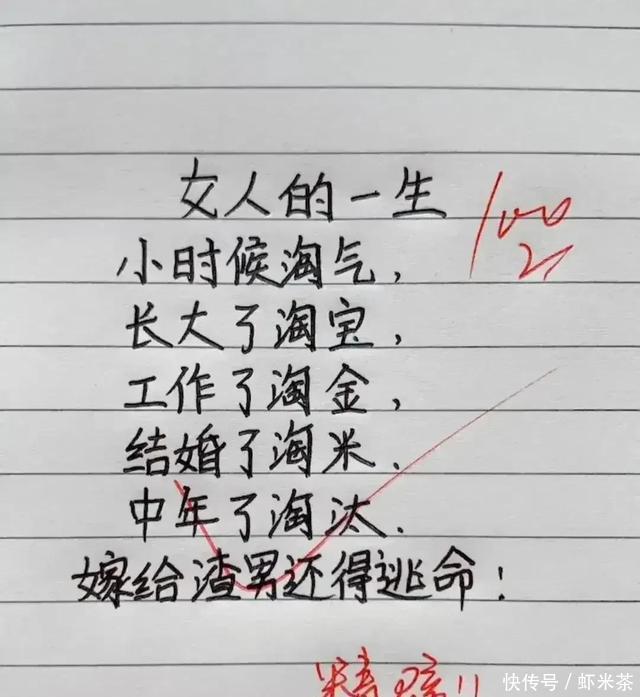 女人的一生
100
小时候淘气，
长大了淘宝，
工作了淘金，
结婚了淘米.
中年了淘汰.
嫁给渣男还得逃命！
快传号/虾米茶